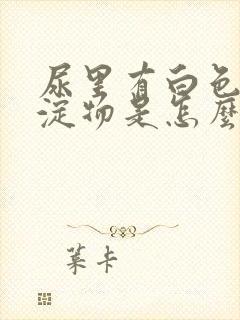 尿里有白色
淀物是怎麼
葉卡